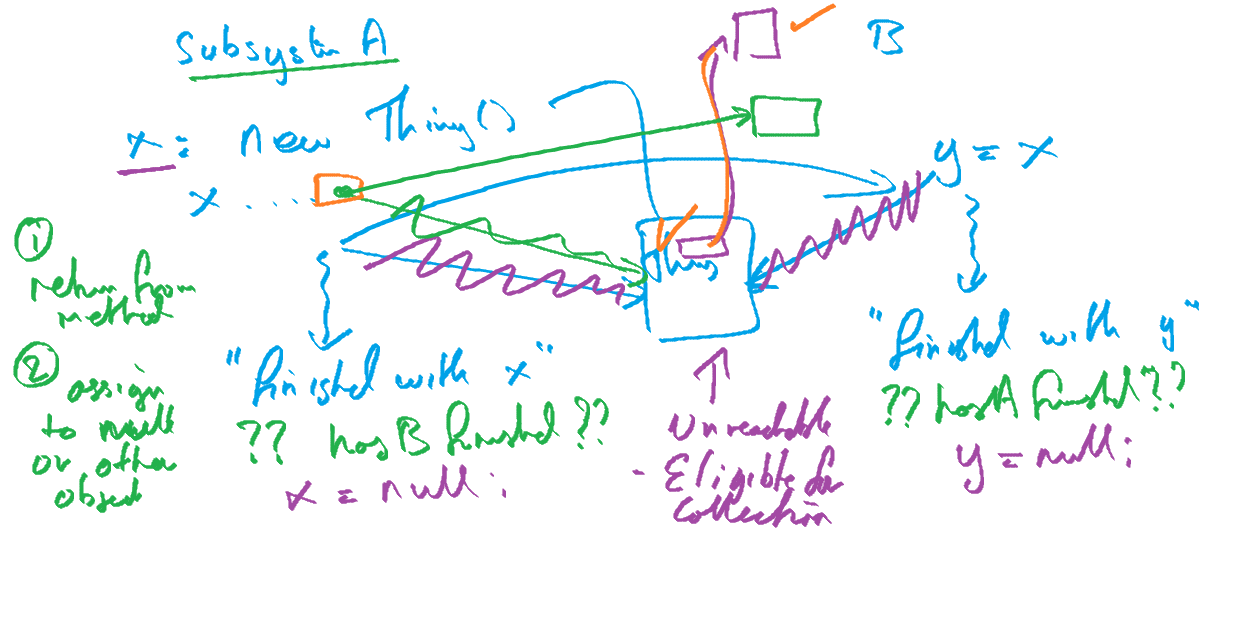 Subsystem A
B
x = new Thing()
y = x
x ....
Thing
①
return from
method
②
assign
to null
or other
object
"finished with x"
?? has B finished ??
x = null;
Unreachable
- Eligible for
Collection
"finished with y"
?? has A finished ??
y = null;